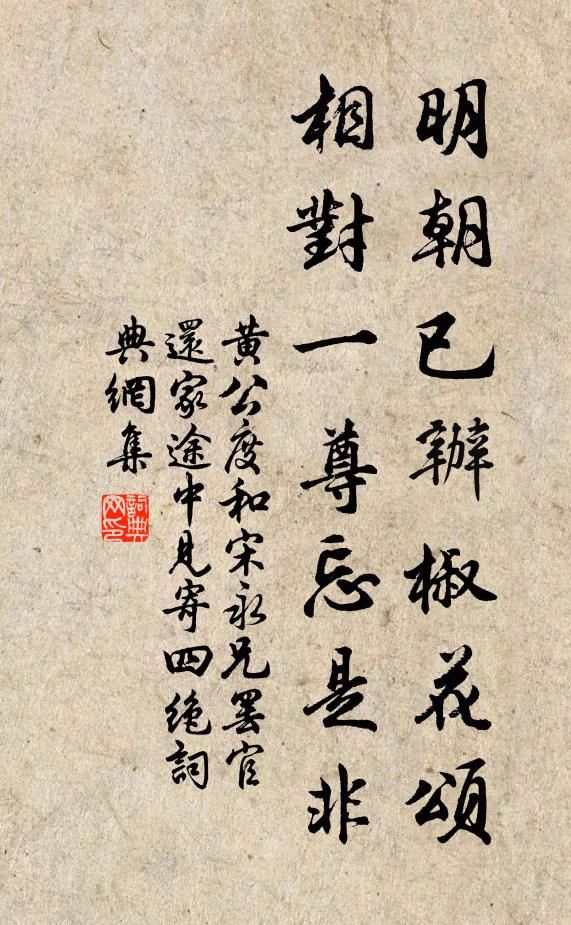 明朝已辦椒花頌
相對一尊忘是非
黃公度和宋永兄罷官
還家途中見寄四絕詞
典網集
詞典
网印